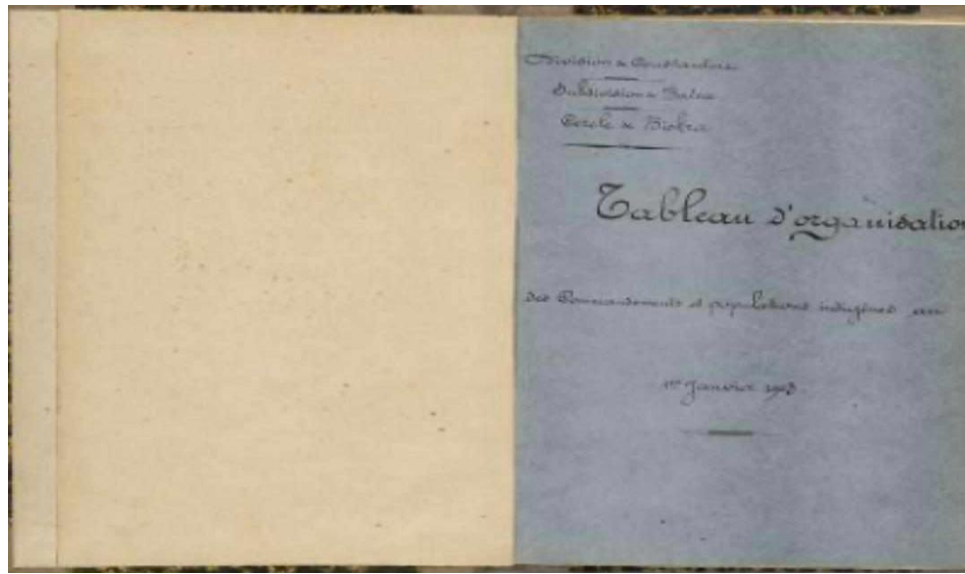 Division de Constantine
Subdivision de Batna
Cercle de Biskra
Tableau d'organisation
des Commandements et populations indigènes au
1er Janvier 1903.